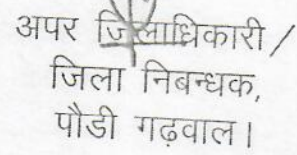 अपर जिलाधिकारी /
जिला निबन्धक,
पौडी गढ़वाल।